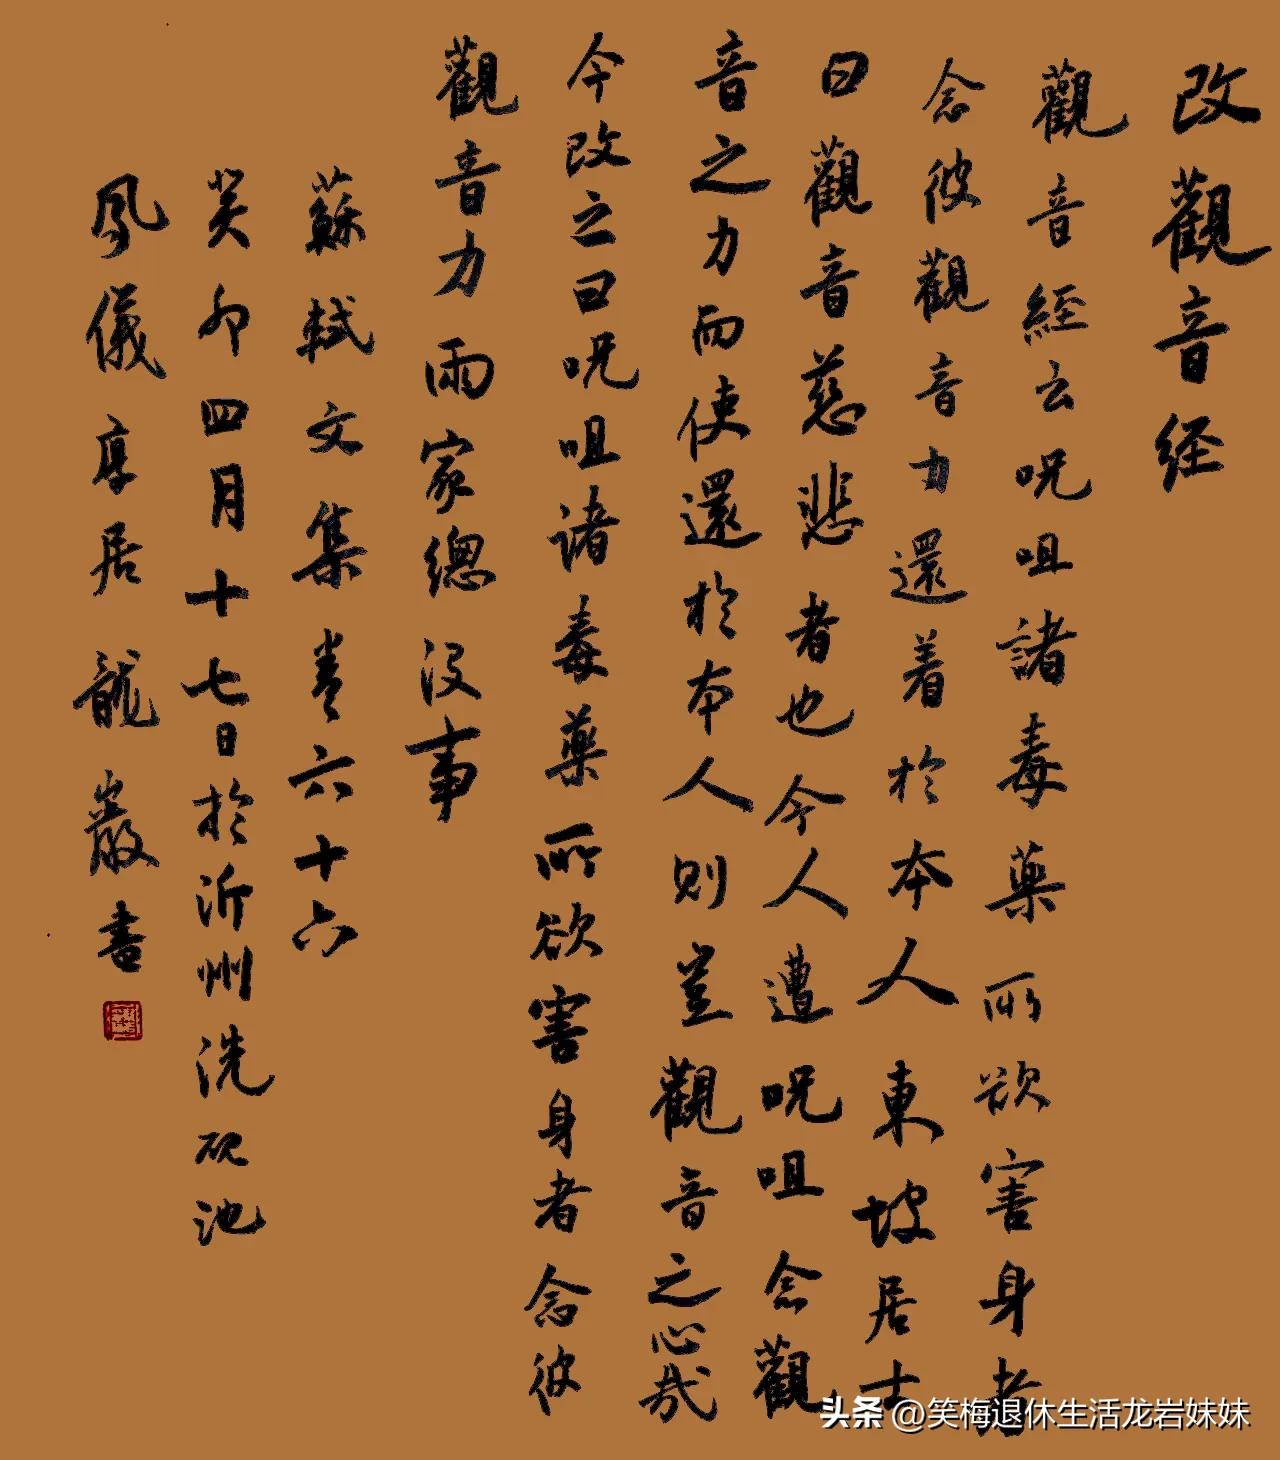 改觀音经
觀音經云呪咀諸毒藥所欲害身者
念彼觀音力還着於本人東坡居士
曰觀音慈悲者也今人遭呪咀念觀
音之力而使還於本人則豈觀音之心哉
今改之曰呪咀诸毒藥所欲害身者念彼
觀音力兩家總没事
蘇軾文集卷六十六
癸卯四月十七日於沂州洗砚池
鳳儀享居龍巖書
头条 @笑梅退休生活龙岩妹妹